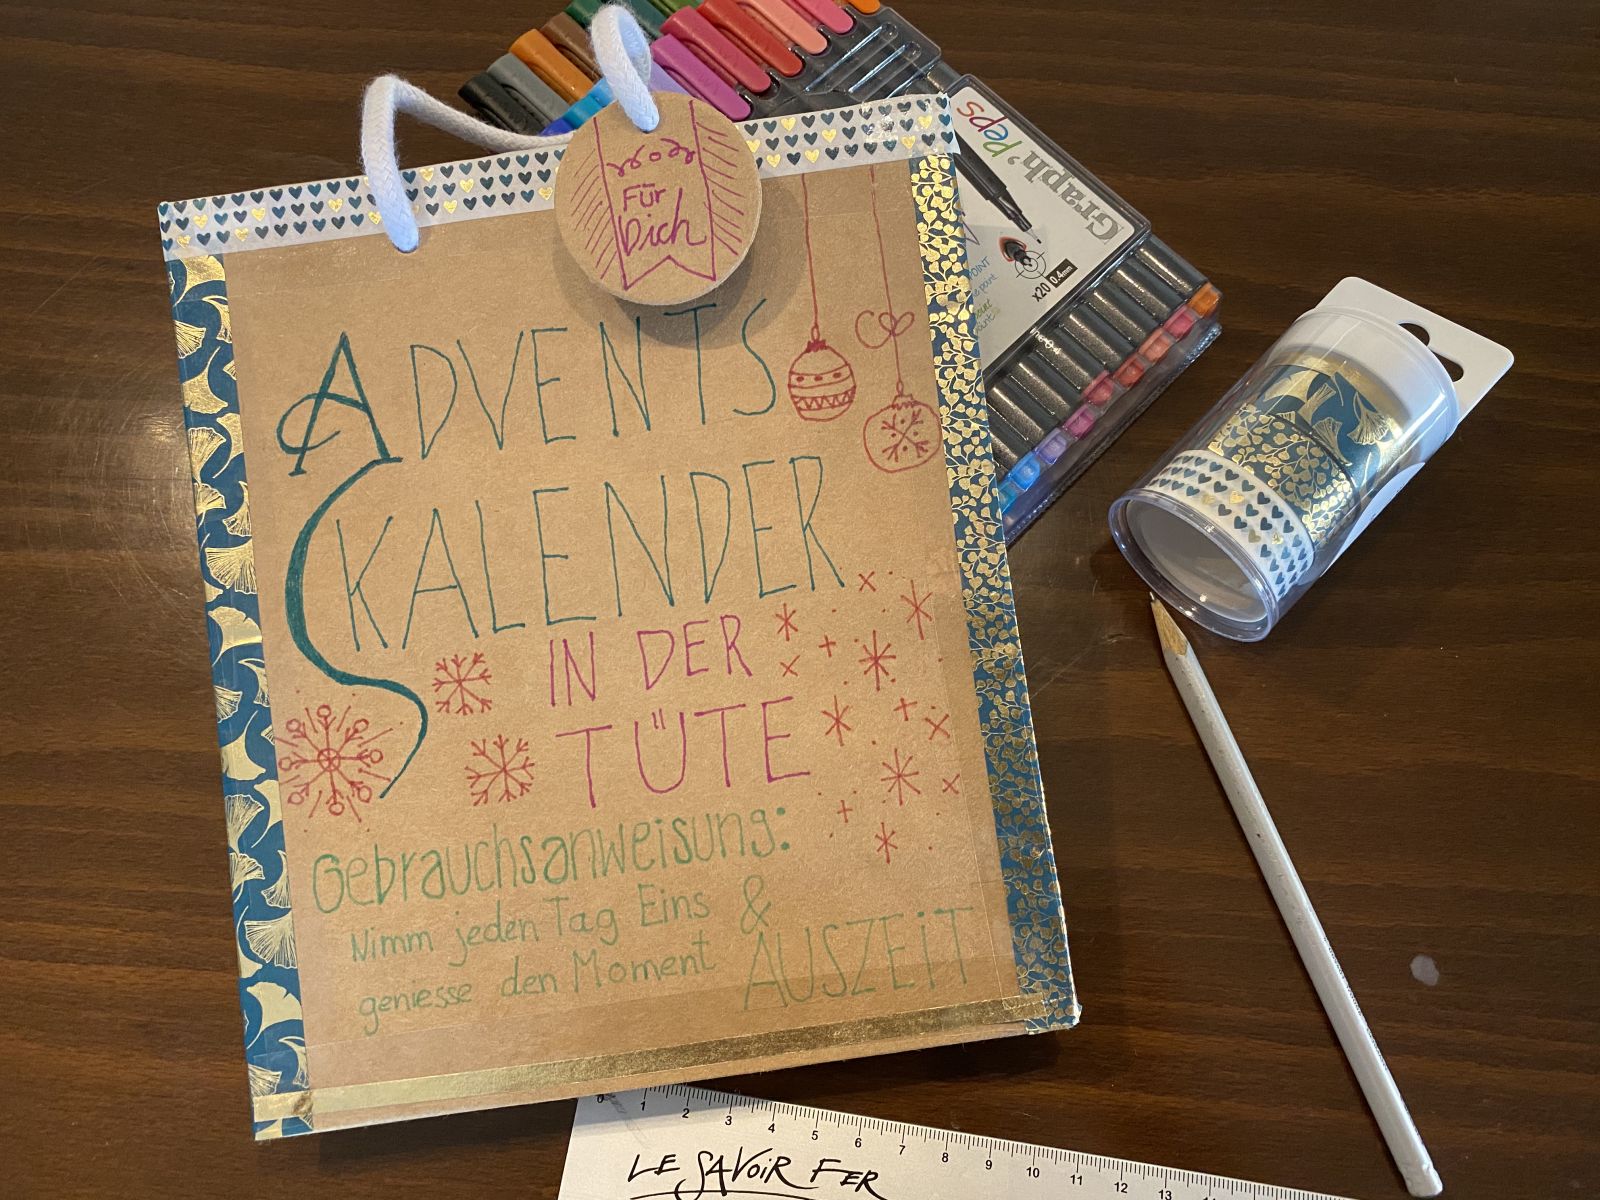 Für
Dich
ADVENTS
KALENDER
IN DER
TÜTE
Gebrauchsanweisung:
Nimm jeden Tag Eins &
geniesse den Moment
AUSZEIT
Graph' Peps
x20 0.4mm
0 1 2 3 4 5 6 7 8 9 10 11 12 13 14
LE SAVOIR FER